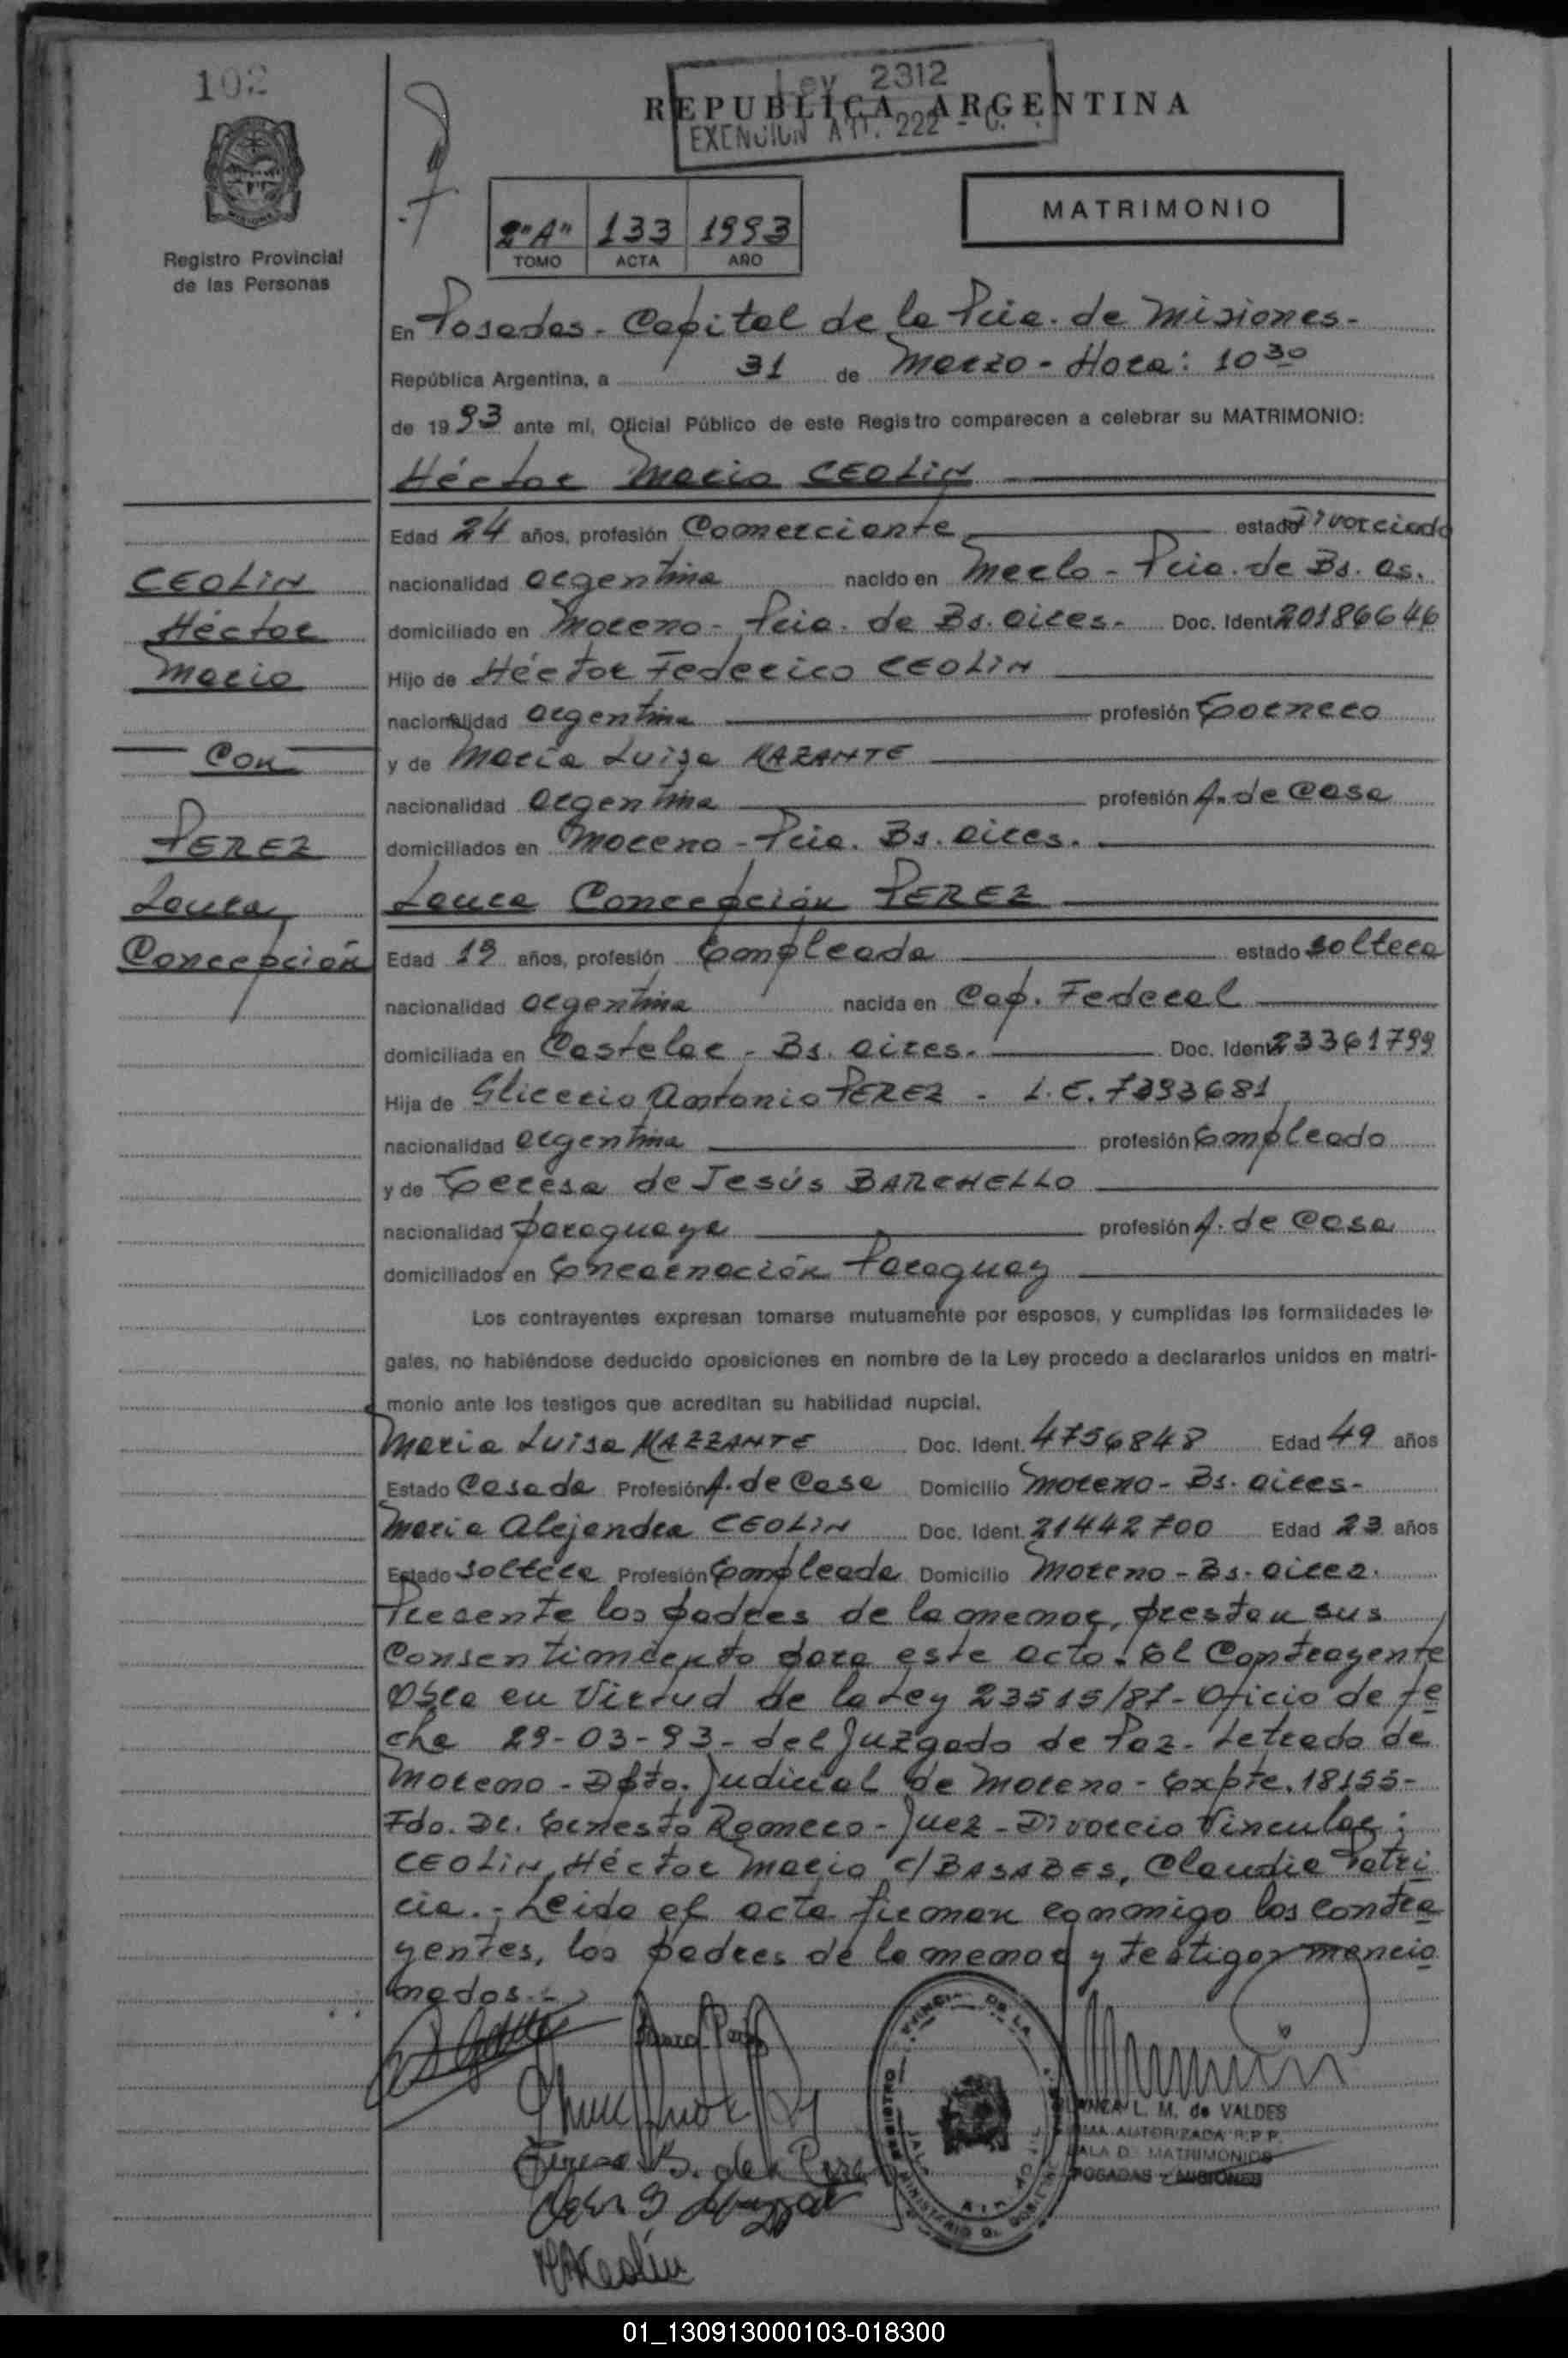 102
Ley 2312
REPUBLICA ARGENTINA
EXENCION ART. 222 - C.
Registro Provincial
de las Personas
MATRIMONIO
2"A" 133 1993
TOMO ACTA AÑO
En Posadas - Capital de la Pcia. de Misiones.
República Argentina, a 31 de Marzo - Hora: 10 30
de 1993 ante mí, Oficial Público de este Registro comparecen a celebrar su MATRIMONIO:
Héctor Mario CEOLIN
Edad 24 años, profesión Comerciante estado Divorciado
nacionalidad argentina nacido en Merlo - Pcia. de Bs. As.
domiciliado en Moreno - Pcia. de Bs. Aires. Doc. Ident. 20186646
Hijo de Héctor Federico CEOLIN
nacionalidad argentina profesión Tornero
y de María Luisa MAZANTE
nacionalidad argentina profesión A. de Casa
domiciliados en Moreno - Pcia. Bs. Aires.
Laura Concepción PEREZ
Edad 19 años, profesión Empleada estado soltera
nacionalidad argentina nacida en Cap. Federal
domiciliada en Castelar - Bs. Aires. Doc. Ident. 23361799
Hija de Glicerio Antonio PEREZ - L.E. 7393681
nacionalidad argentina profesión Empleado
y de Teresa de Jesús BARCHELLO
nacionalidad paraguaya profesión A. de Casa
domiciliados en Encarnación Paraguay
CEOLIN
Héctor
Mario
Con
PEREZ
Laura
Concepción
Los contrayentes expresan tomarse mutuamente por esposos, y cumplidas las formalidades le-
gales, no habiéndose deducido oposiciones en nombre de la Ley procedo a declararlos unidos en matri-
monio ante los testigos que acreditan su habilidad nupcial.
Maria Luisa MAZZANTE Doc. Ident. 4756848 Edad 49 años
Estado Casada Profesión A. de Casa Domicilio Moreno - Bs. Aires.
Maria Alejandra CEOLIN Doc. Ident. 21442700 Edad 23 años
Estado soltera Profesión Empleada Domicilio Moreno - Bs. Aires.
Presente los padres de la menor, prestan sus
Consentimiento para este acto. El Contrayente
Obra en Virtud de la Ley 23515/87 - Oficio de fe
cha 29-03-93 - del Juzgado de Paz - Letrado de
Moreno - Dpto. Judicial de Moreno - Expte. 18155 -
Fdo. Dr. Ernesto Romero - Juez - Divorcio Vincular:
CEOLIN, Héctor Mario c/ BASABES, Claudia Patri
cia. - Leida el acta firman conmigo los contra
yentes, los padres de la menor y testigos mencio
nados. -
Laura Perez
Teresa B. de Perez
MACeolin
L. M. de VALDES
FIRMA AUTORIZADA R.P.P.
SALA D. MATRIMONIOS
POSADAS - MISIONES
01_130913000103-018300